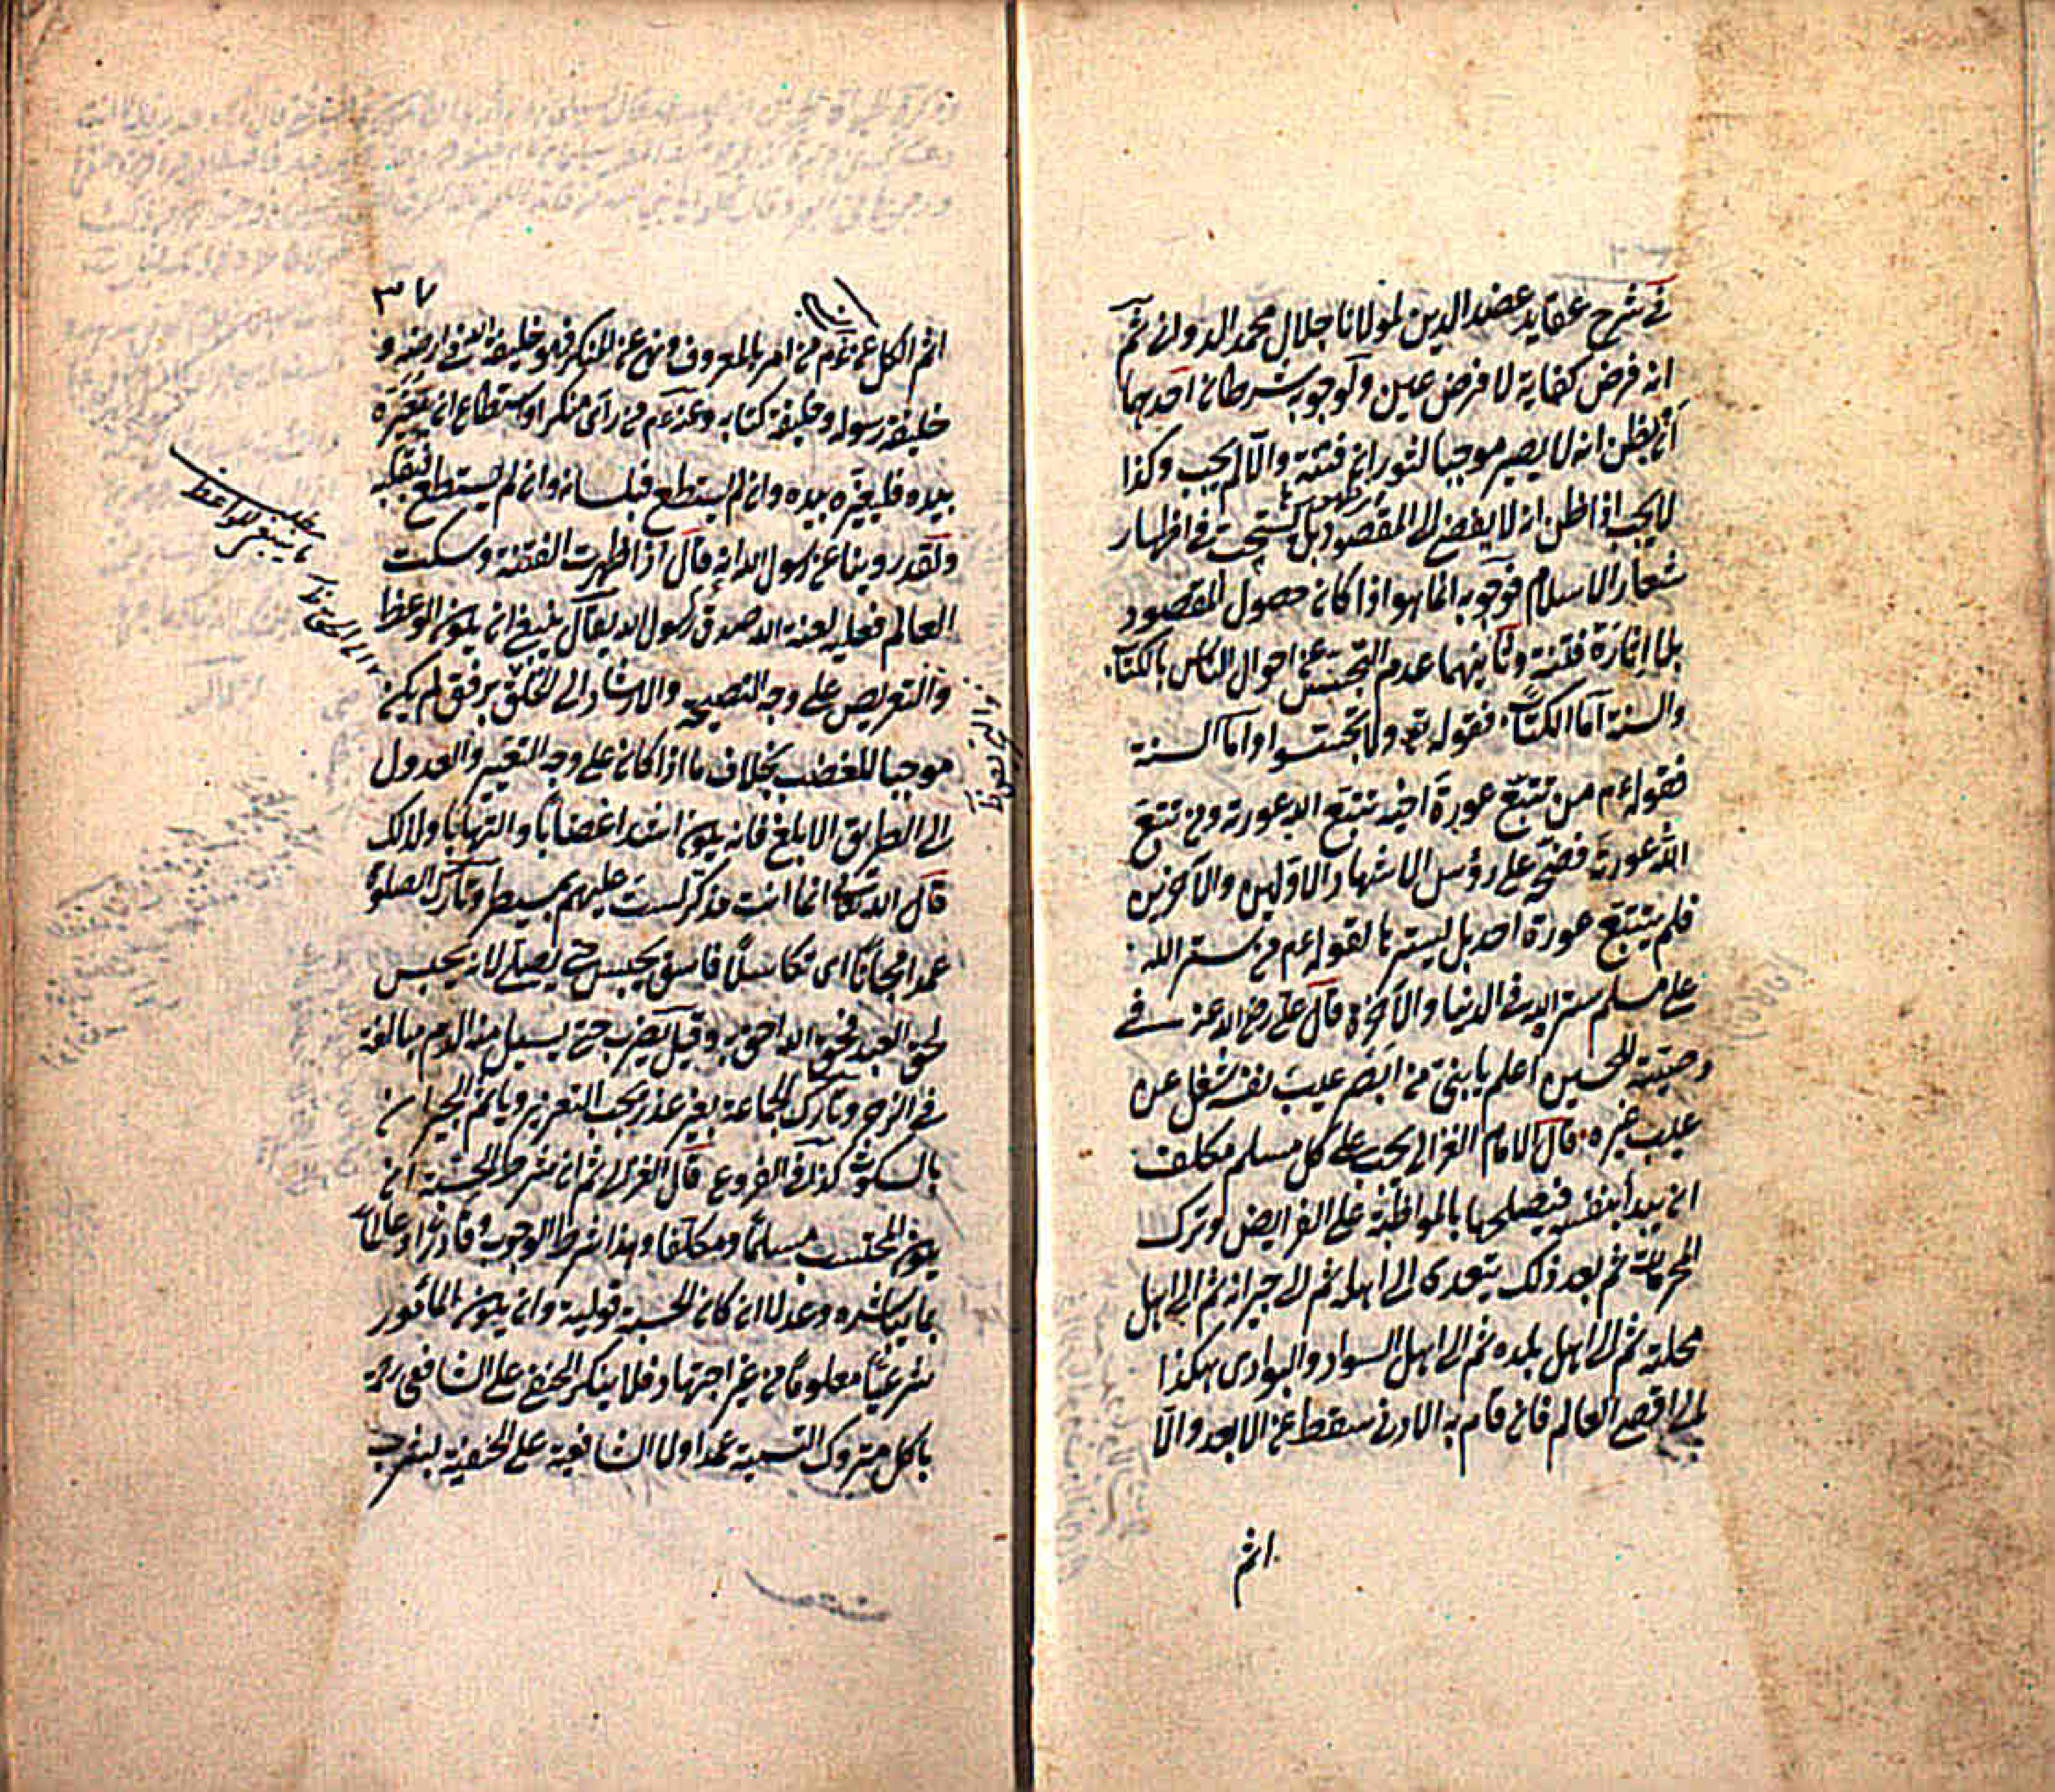 في شرح عقايد عضد الدين لمولانا جلال محمد الدواني ثم
انه فرض كفاية لا فرض عين ولوجوبه شرطان احديهما
ان يظن انه لا يصير موجبا لثوران فتنة والا لم يجب وكذا
لا يجب اذا ظن انه لا يفضي الى المقصود بل يستحب في اظهار
شعار الاسلام فوجوبه انما هو اذا كان حصول المقصود
بلا اثارة فتنة وثانيهما عدم التجسس عن احوال الناس بالكتاب
والسنة اما الكتاب فقوله تع ولا تجسسوا واما السنة
فقوله عم من تتبع عورة اخيه تتبع الله عورته ومن تتبع
الله عورته فضحه على رؤس الاشهاد الاولين والآخرين
فلم يتتبع عورة احد بل يسترها لقوله عم من ستر الله
على مسلم ستر الله في الدنيا والآخرة قال علي رضي الله عنه في
وصيته للحسين اعلم يا بني من ابصر عيب نفسه شغل عن
عيب غيره قال الامام الغزالي يجب على كل مسلم مكلف
ان يبدأ بنفسه فيصلحها بالمواظبة على الفرايض وترك
المحرمات ثم بعد ذلك يتعدى الى اهله ثم الى جيرانه ثم الى اهل
محلته ثم الى اهل بلده ثم الى اهل السواد والبوادي هكذا
الى اقصى العالم فان قام به الادنى سقط عن الابعد والا
اثم
٣٧
اثم الكل عن عم من امر بالمعروف ونهى عن المنكر فهو خليفة الله في ارضه و
خليفة رسوله وخليفة كتابه وعنه عم من رآى منكرا واستطاع ان يغيره
بيده فليغيره بيده وان لم يستطع فبلسانه وان لم يستطع فبقلبه
ولقد روينا عن رسول الله انه قال اذا ظهرت الفتنة وسكت
العالم فعليه لعنة الله صدق رسول الله يقال ينبغي ان يكون الوعظ
والتعريض على وجه النصيحة والارشاد الى التخلق برفق لم يكن
موجبا للغضب بخلاف ما اذا كان على وجه التعيير والعدول
الى الطريق الابلغ فانه يكون اشد اغضابا والتهابا ولذلك
قال الله تعالى انما انت مذكر لست عليهم بمسيطر وتارك الصلوة
عمدا مجانا اى تكاسلا فاسق يحبس حتى يصلي لانه يحبس
لحق العبد فحق الله احق به وقيل يضرب حتى يسيل منه الدم مبالغة
في الزجر وتارك الجماعة بغير عذر يجب التعزير ويأثم الجيران
بالسكوت كذا في الفروع قال الغزالي ثم ان شرط الحسبة ان
يكون المحتسب مسلما ومكلفا وهذا شرط الوجوب وقادرا وعالما
بما يباشره وعدلا ان كان الحسبة قولية وان يكون المأمور
شرعيا معلوما من غير اجتهاد فلا ينكر الحنفي على الشافعي
باكل متروك التسمية عمدا ولا الشافعية على الحنفية لشرب
مطلب
ما ينبغي للواعظ